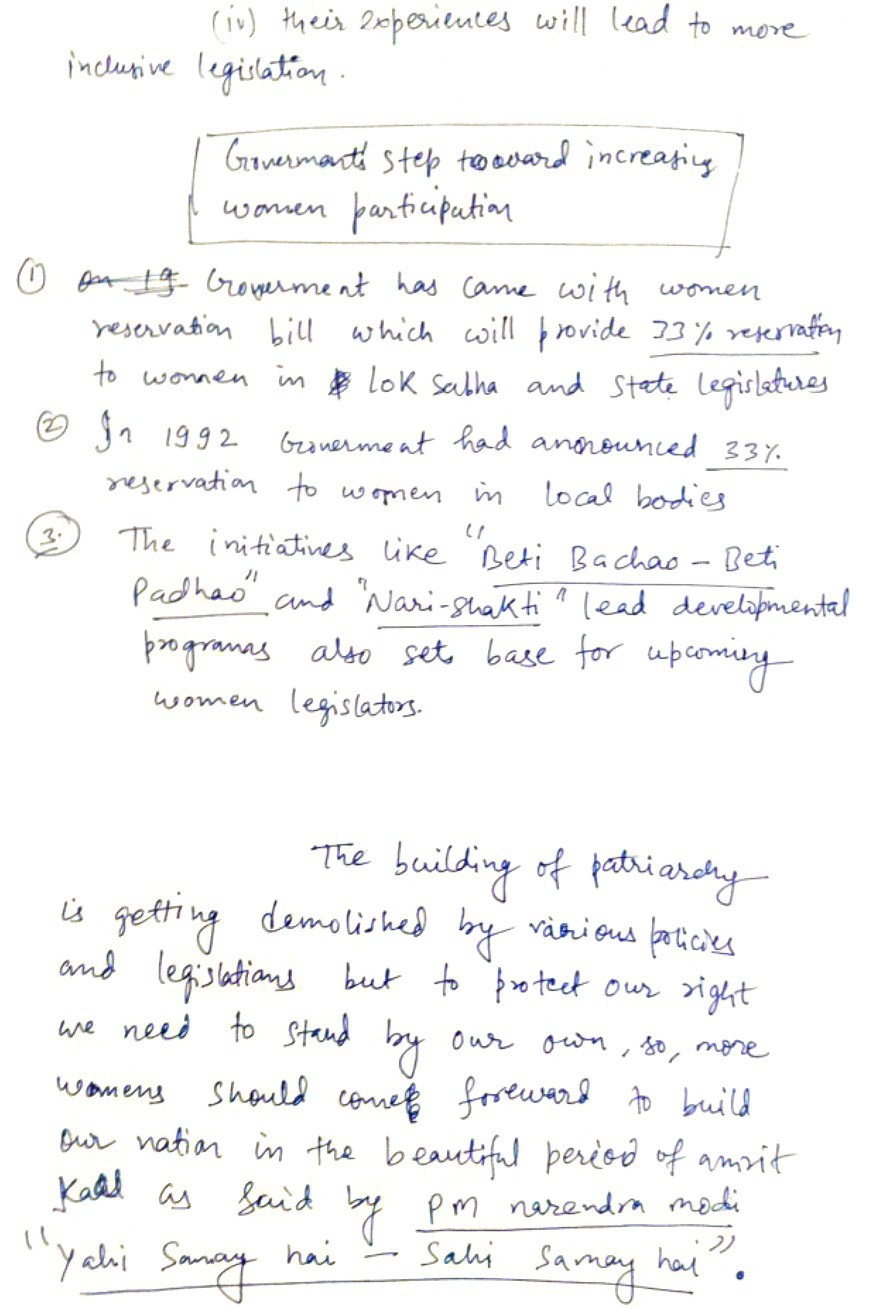 (iv) their experiences will lead to more
inclusive legislation.
Goverment's step tooward increasing
women participation
① On 19 Goverment has came with women
reservation bill which will provide 33% reservation
to women in Lok Sabha and State legislatures
② In 1992 Goverment had annonunced 33%
reservation to women in local bodies
③. The initiatives like "Beti Bachao - Beti
Padhao" and "Nari-Shakti" lead developmental
programs also sets base for upcoming
women legislators.
The building of patriarchy
is getting demolished by various policies
and legislations but to protect our right
we need to stand by our own, so, more
womens should come foreward to build
our nation in the beautiful period of amrit
Kaal as said by PM narendra modi
"Yahi Samay hai - Sahi Samay hai".